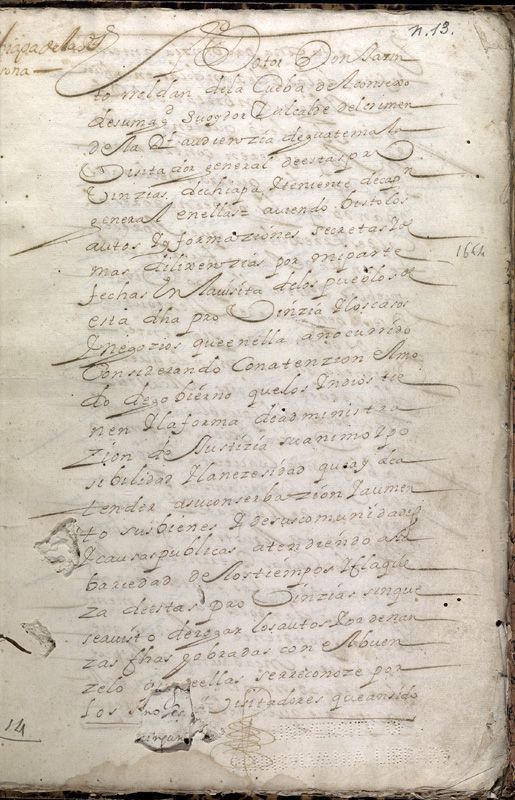 n. 13.
Dotor Don Jazin
to roldan dela Cueba del Consexo
de su mag.d su oydor Y alcalde del crimen
de la R.l audienzia de guatemala
Visitador general de estas pro
Vinzias de chiapa Y teniente de cap.n
general en ellas = auiendo Visto los
autos Ynformaziones secretas Y de
mas dilixenzias por mi parte
fechas En la uisita delos pueblos de
esta dha pro Vinzia Y los casos
Y negozios que en ella an ocurrido
Considerando Con atenzion el mo
do de gobierno que los Yndios tie
nen Y la forma de administra
zion de Justizia su animo Y po
sibilidad Y la nezesidad que ay de a
tender a su conserbazion Y aumen
to sus bienes Y de sus comunidades
Y causas publicas atendiendo a la
bariedad de los tiempos Y flaque
za de estas pro Vinzias sin que
sea uisto derogar los autos Y ordenan
zas fhas Y obradas con el buen
zelo que en ellas se rreconoze por
los Visitadores que an sido
1664
14